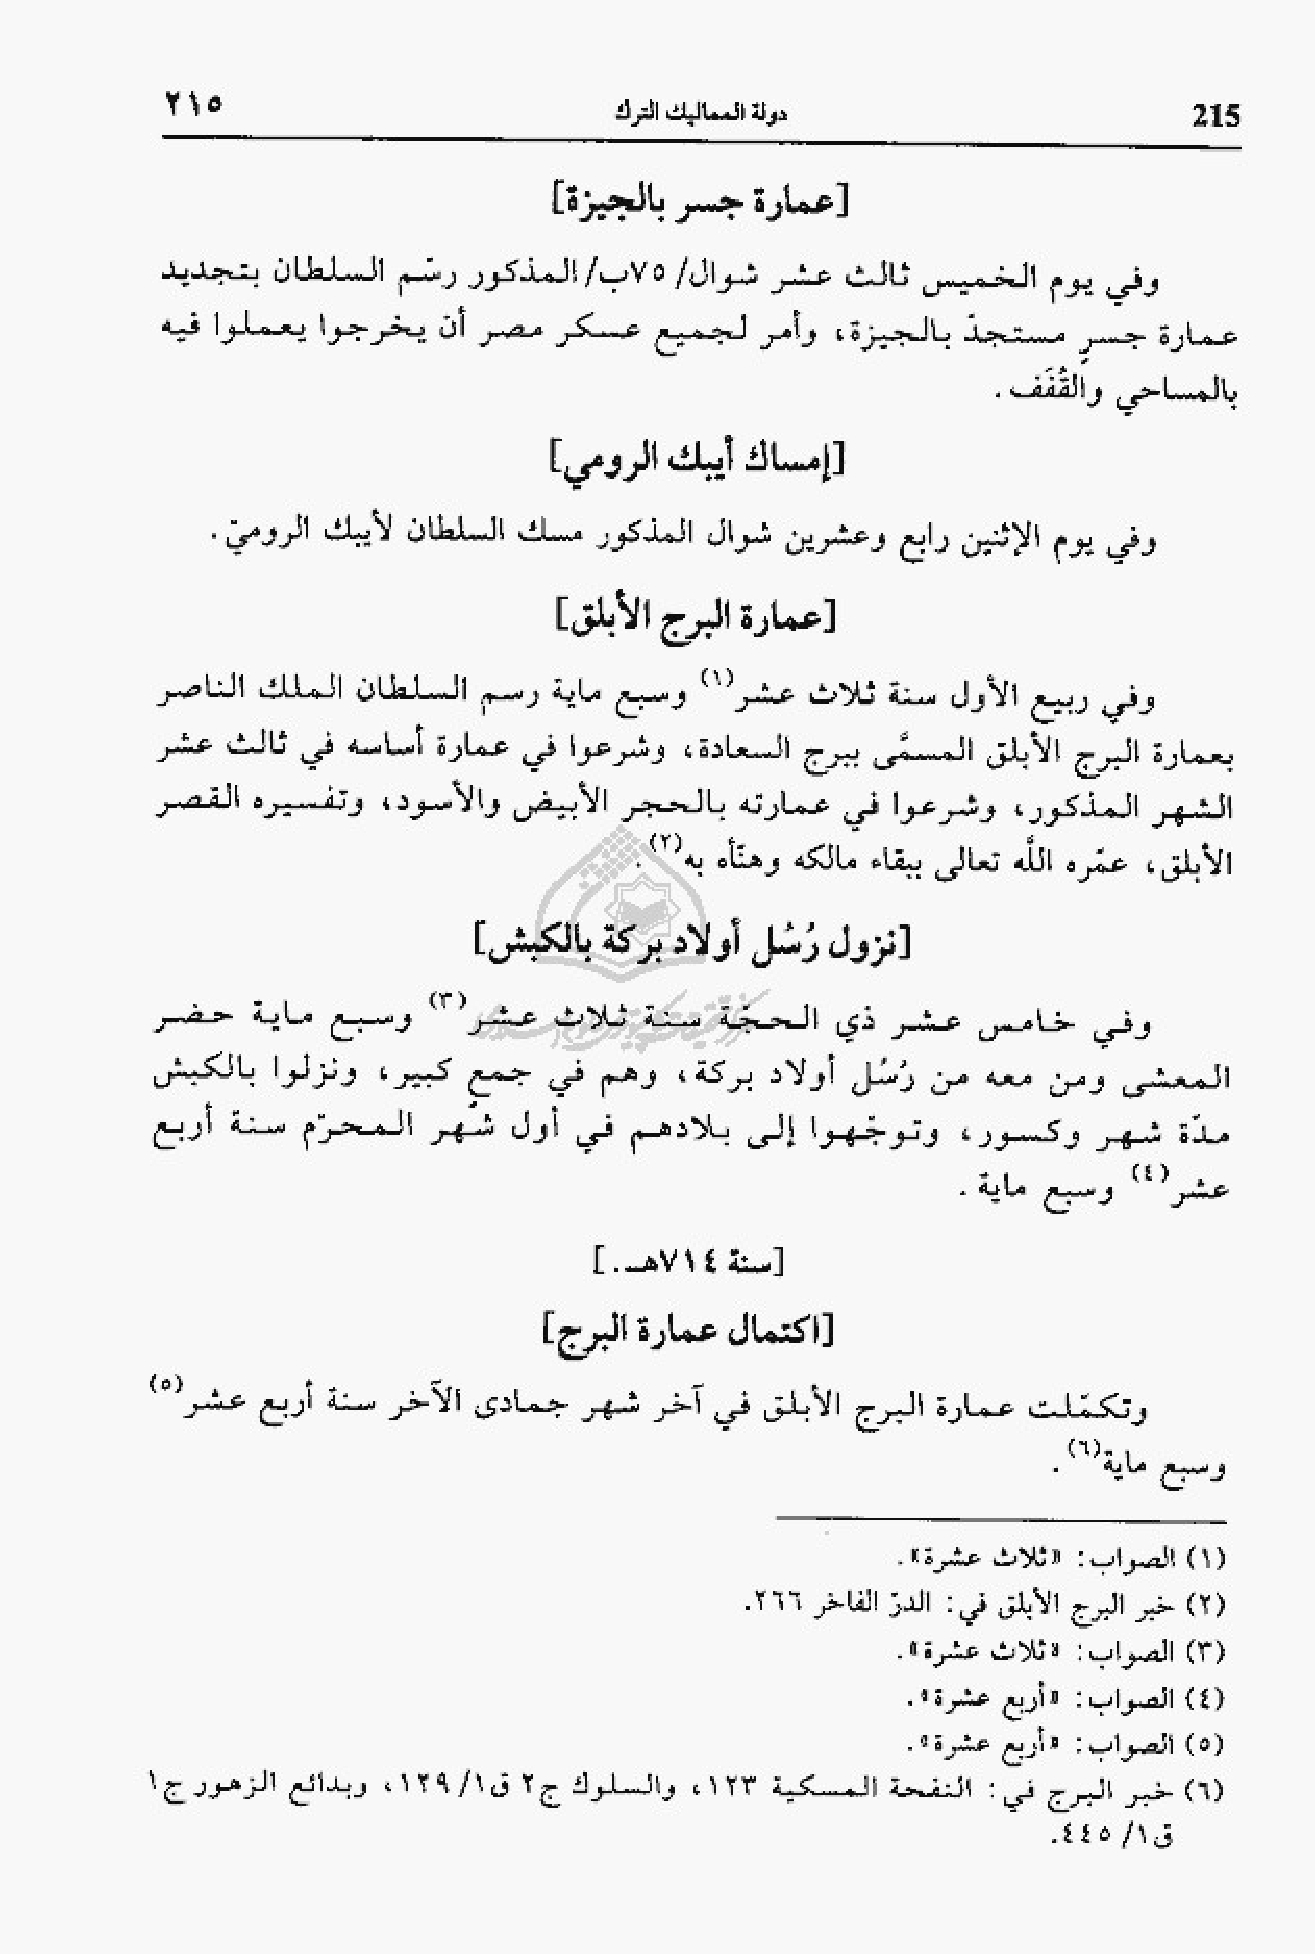 215 دولة المماليك الترك ٢١٥
[عمارة جسر بالجيزة]
وفي يوم الخميس ثالث عشر شوال/ ٧٥ب/ المذكور رسّم السلطان بتجديد
عمارة جسرٍ مستجدّ بالجيزة، وأمر لجميع عسكر مصر أن يخرجوا يعملوا فيه
بالمساحي والقُفَف.
[إمساك أيبك الرومي]
وفي يوم الإثنين رابع وعشرين شوال المذكور مسك السلطان لأيبك الروميّ.
[عمارة البرج الأبلق]
وفي ربيع الأول سنة ثلاث عشر(١) وسبع ماية رسم السلطان الملك الناصر
بعمارة البرج الأبلق المسمَّى ببرج السعادة، وشرعوا في عمارة أساسه في ثالث عشر
الشهر المذكور، وشرعوا في عمارته بالحجر الأبيض والأسود، وتفسيره القصر
الأبلق، عمّره اللَّه تعالى ببقاء مالكه وهنّأه به(٢).
[نزول رُسُل أولاد بركة بالكبش]
وفي خامس عشر ذي الحجّة سنة ثلاث عشر(٣) وسبع ماية حضر
المعشى ومن معه من رُسُل أولاد بركة، وهم في جمعٍ كبير، ونزلوا بالكبش
مدّة شهر وكسور، وتوجّهوا إلى بلادهم في أول شهر المحرّم سنة أربع
عشر(٤) وسبع ماية.
[سنة ٧١٤هـ.]
[اكتمال عمارة البرج]
وتكمّلت عمارة البرج الأبلق في آخر شهر جمادى الآخر سنة أربع عشر(٥)
وسبع ماية(٦).
(١) الصواب: «ثلاث عشرة».
(٢) خبر البرج الأبلق في: الدرّ الفاخر ٢٦٦.
(٣) الصواب: «ثلاث عشرة».
(٤) الصواب: «أربع عشرة».
(٥) الصواب: «أربع عشرة».
(٦) خبر البرج في: النفحة المسكية ١٢٣، والسلوك ج٢ ق١/ ١٢٩، وبدائع الزهور ج١
ق١/ ٤٤٥.